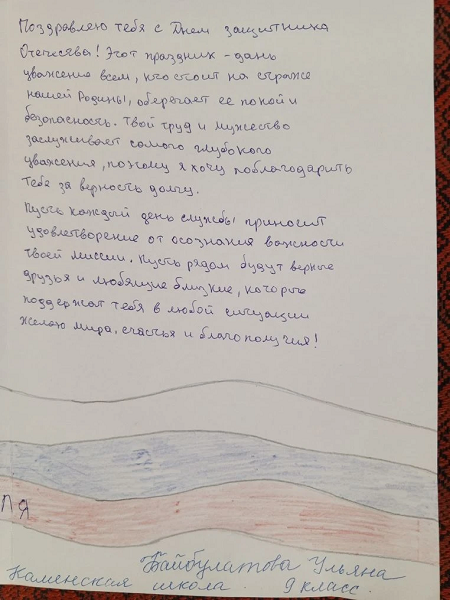 Поздравляю тебя с Днем защитника
Отечества! Этот праздник - дань
уважения всем, кто стоит на страже
нашей Родины, оберегает ее покой и
безопасность. Твой труд и мужество
заслуживает самого глубокого
уважения, поэтому я хочу поблагодарить
тебя за верность долгу.
Пусть каждый день службы приносит
удовлетворение от осознания важности
твоей миссии. Пусть рядом будут верные
друзья и любящие близкие, которые
поддержат тебя в любой ситуации
желаю мира, счастья и благополучия!
ЛЯ
Байбулатова Ульяна
Каменская школа 9 класс.